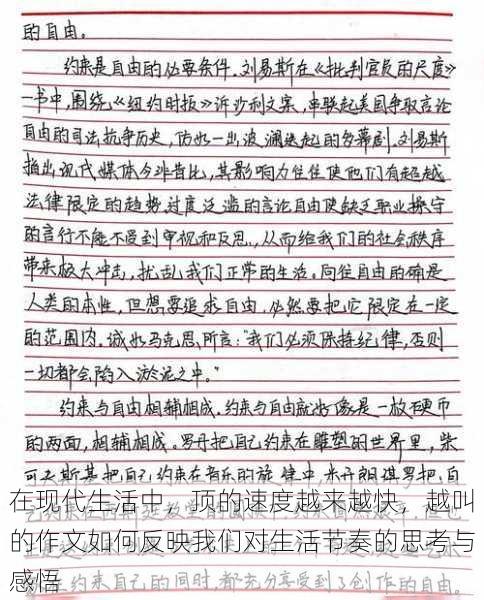 的自由。
约束是自由的必要条件。刘易斯在《批判官员的尺度》
一书中,围绕《纽约时报》诉沙利文案,串联起美国争取言论
自由的司法抗争历史,仿如一出波澜迭起的多幕剧。刘易斯
指出现代媒体今非昔比,其影响力往往使他们有超越
法律限定的趋势,过度泛滥的言论自由使缺乏职业操守
的言行不能不受到审视和反思,从而给我们的社会秩序
带来极大冲击,扰乱我们正常的生活。向往自由的确是
人类的本性,但想要追求自由,必然要把它限定在一定
的范围内。诚如马克思所言:“我们必须保持纪律,否则
一切都会陷入淤泥之中。”
约束与自由相辅相成。约束与自由就好像是一枚硬币
的两面,相辅相成。罗丹把自己约束在雕塑的世界里,柴
可夫斯基把自己约束在音乐的旋律中,米开朗琪罗把自
在现代生活中,顶的速度越来越快,越叫
的作文如何反映我们对生活节奏的思考与
感悟
在约束自己的同时,都充分享受到了创作的自由。